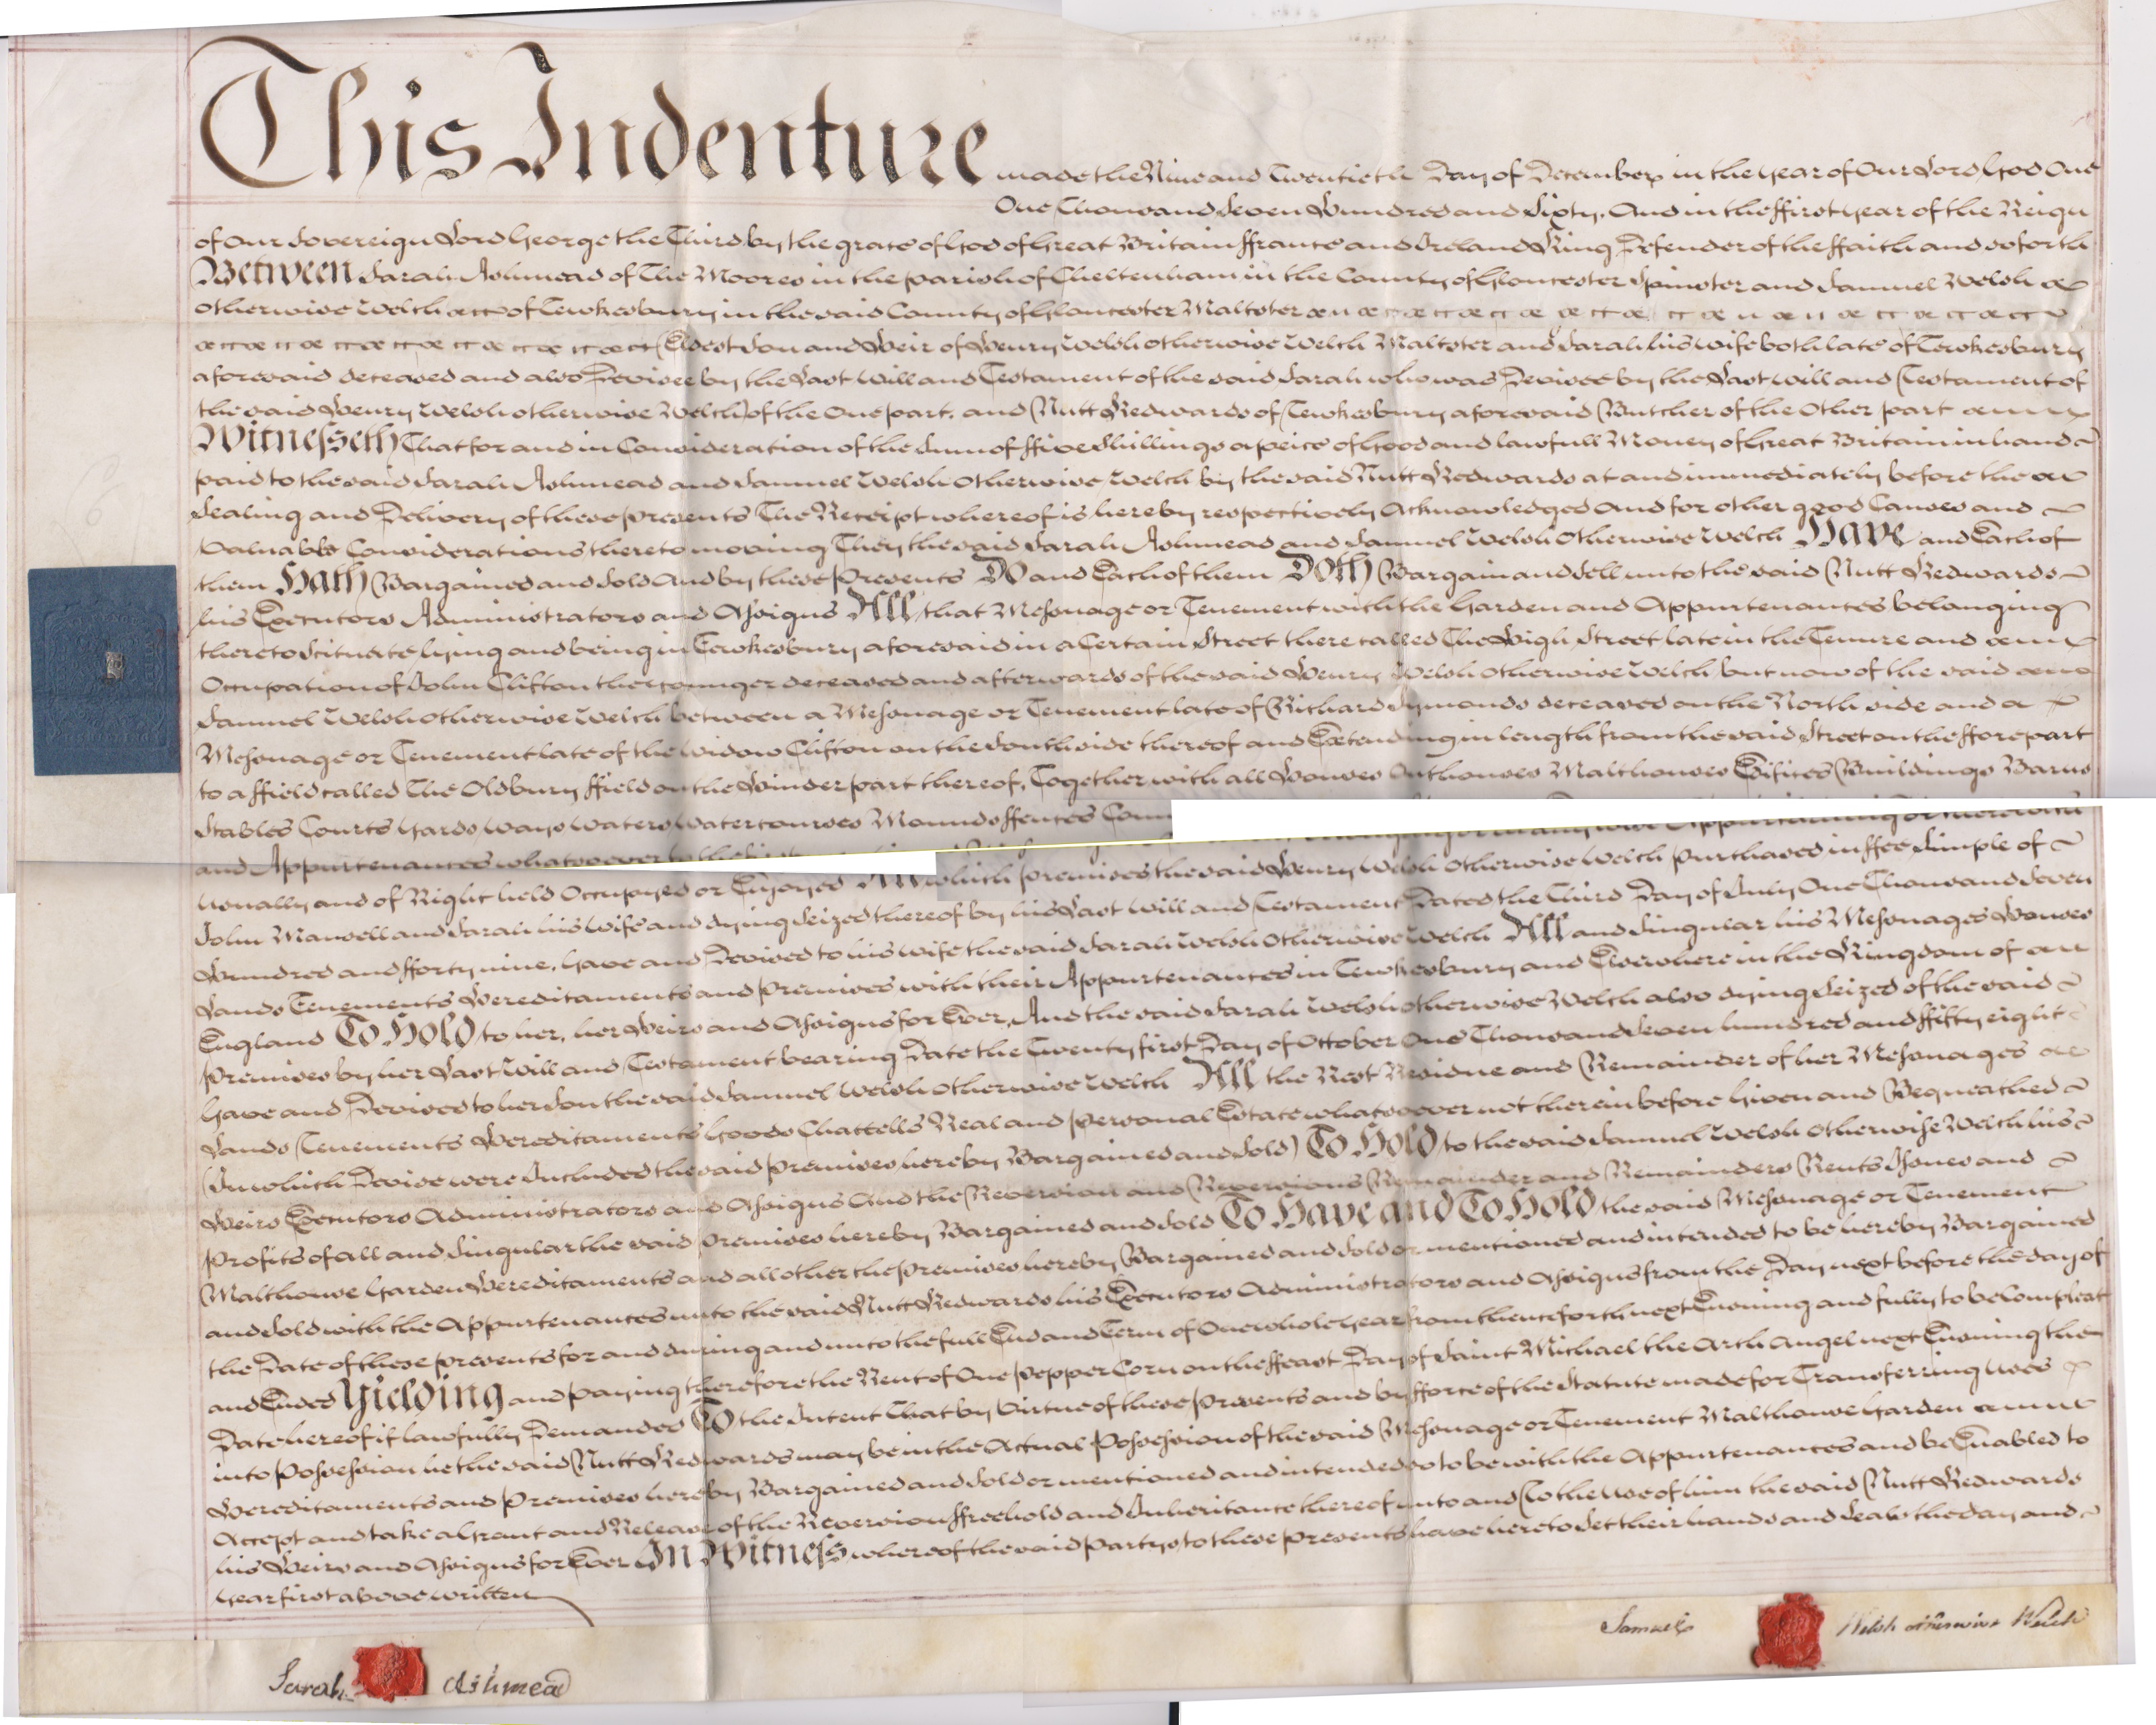 This Indenture made the Nine and Twentieth Day of December in the year of Our Lord God One
One Thousand Seven Hundred and Sixty, And in the ffirst year of the Reign
of Our Sovereign Lord George the Third by the grace of God of Great Britain ffrance and Ireland King Defender of the ffaith and so forth
Between Sarah Ashmead of The Moores in the parish of Cheltenham in the County of Gloucester Spinster and Samuel Welsh
otherwise Welch of Tewkesbury in the said County of Gloucester Maltster
Eldest Son and Heir of Henry Welsh otherwise Welch Maltster and Sarah his wife both late of Tewkesbury
aforesaid deceased and also Devisee by the Last Will and Testament of the said Sarah who was Devisee by the Last Will and Testament of
the said Henry Welsh otherwise Welch) of the One part, and Nutt Kedwards of Tewkesbury aforesaid Butcher of the Other part
Witnesseth That for and in Consideration of the Sum of ffive Shillings a peice of Good and lawfull Money of Great Britain in hand
paid to the said Sarah Ashmead and Samuel Welsh otherwise Welch by the said Nutt Kedwards at and immediately before the
Sealing and Delivery of these presents The Receipt whereof is hereby respectively Acknowledged And for other good Causes and
Valuable Considerations thereto moving They the said Sarah Ashmead and Samuel Welsh otherwise Welch Have and Each of
them Hath Bargained and Sold And by these Presents Do and Each of them Doth Bargain and Sell unto the said Nutt Kedwards
his Executors Administrators and Assigns All that Messuage or Tenement with the Garden and Appurtenances belonging
thereto Scituate lying and being in Tewkesbury aforesaid in a Certain Street there called The High Street late in the Tenure and
Occupation of John Clifton the younger deceased and afterwards of the said Henry Welsh otherwise Welch but now of the said
Samuel Welsh otherwise Welch between a Messuage or Tenement late of Richard Symonds deceased on the North side and a
Messuage or Tenement late of the widow Clifton on the South side thereof and Extending in length from the said Street on the ffore part
to a ffield called The Oldbury ffield on the Hinder part thereof, Together with all Houses Outhouses Malthouses Edifices Buildings Barns
Stables Courts Yards Ways Waters Watercourses Mounds ffences
and Appurtenances whatsoever to the
usually and of Right held Occupyed or Enjoyed All which premises the said Henry Welsh otherwise Welch purchased in ffee Simple of
John Mansell and Sarah his Wife and dying Seized thereof by his Last Will and Testament Dated the Third Day of July One Thousand Seven
Hundred and fforty nine, Gave and Devised to his wife the said Sarah Welsh otherwise Welch All and Singular his Messuages Houses
Lands Tenements Hereditaments and premises with their Appurtenances in Tewkesbury and Elsewhere in the Kingdom of
England To Hold to her, her Heirs and Assigns for Ever, And the said Sarah Welsh otherwise Welch also dying Seized of the said
Premises by her Last Will and Testament bearing Date the Twenty first Day of October One Thousand Seven hundred and ffifty eight
Gave and Devised to her Son the said Samuel Welsh otherwise Welch All the Rest Residue and Remainder of her Messuages
Lands Tenements Hereditaments Goods Chattells Real and personal Estate whatsoever not therein before Given and Bequeathed
(In which Devise were Included the said premises hereby Bargained and Sold) To Hold to the said Samuel Welsh otherwise Welch his
Heirs Executors Administrators and Assigns And the Reversion and Reversions Remainder and Remainders Rents Issues and
Profits of all and Singular the said premises hereby Bargained and Sold To Have and To Hold the said Messuage or Tenement
Malthouse Garden Hereditaments and all other the premises hereby Bargained and Sold or mentioned and intended to be hereby Bargained
and Sold with the Appurtenances unto the said Nutt Kedwards his Executors Administrators and Assigns from the Day next before the day of
the Date of these presents for and during and unto the full End and Term of One whole Year from thenceforth next Ensuing and fully to be Compleat
and Ended Yielding and Paying therefore the Rent of One Pepper Corn on the ffeast Day of Saint Michael the Arch Angel next Ensuing the
Date hereof if lawfully Demanded To the Intent That by Virtue of these Presents and by fforce of the Statute made for Transferring Uses
into Possession he the said Nutt Kedwards may be in the Actual Possession of the said Messuage or Tenement Malthouse Garden
Hereditaments and Premises hereby Bargained and Sold or mentioned and intended so to be with the Appurtenances and be Enabled to
Accept and take a Grant and Release of the Reversion ffreehold and Inheritance thereof unto and To the Use of him the said Nutt Kedwards
his Heirs and Assigns for Ever In Witness whereof the said partys to these presents have hereto Set their hands and Seals the day and
Year first above written
Samuel Welsh otherwise Welch
Sarah Ashmead